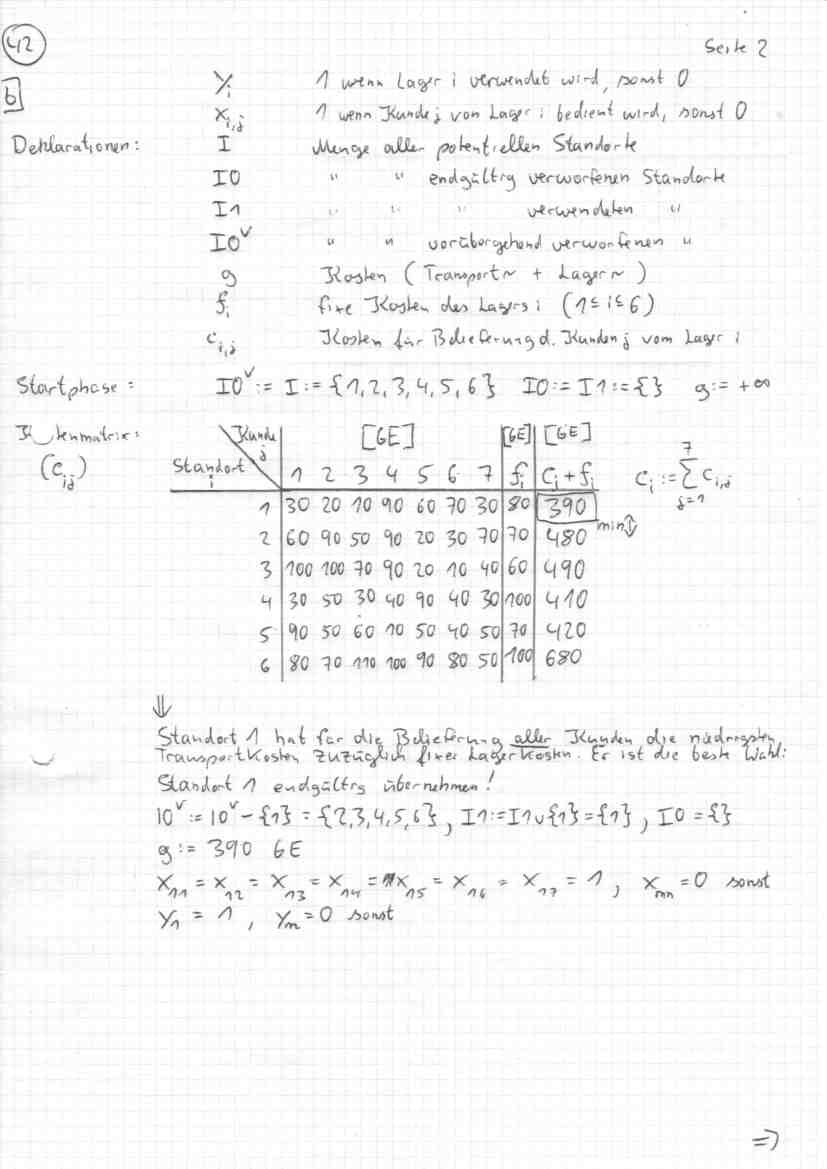 42
Seite 2
b
Yi 1 wenn Lager i verwendet wird, sonst 0
xi,j 1 wenn Kunde j von Lager i bedient wird, sonst 0
Deklarationen: I Menge aller potentiellen Standorte
I0 " " endgültig verworfenen Standorte
I1 " " " verwendeten "
I0ᵛ " " vorübergehend verworfenen "
g Kosten (Transport~ + Lager~)
fi fixe Kosten des Lagers i (1≤i≤6)
ci,j Kosten für Belieferung d. Kunden j vom Lager i
Startphase: I0ᵛ := I := {1,2,3,4,5,6} I0 := I1 := {} g := +∞
(cij)
Kunde j [GE] [GE] [GE]
Standort i 1 2 3 4 5 6 7 fi Ci + fi Ci := Σ ci,j j=1 7
1 30 20 10 90 60 70 30 80 390
min
2 60 90 50 90 20 30 70 70 480
3 100 100 70 90 20 10 40 60 490
4 30 50 30 40 90 40 30 100 410
5 90 50 60 10 50 40 50 70 420
6 80 70 110 100 90 80 50 100 680
⇓
Standort 1 hat für die Belieferung aller Kunden die niedrigsten
Transportkosten zuzüglich fixer Lagerkosten. Er ist die beste Wahl:
Standort 1 endgültig übernehmen!
I0ᵛ := I0ᵛ - {1} = {2,3,4,5,6}, I1 := I1 ∪ {1} = {1}, I0 = {}
g := 390 GE
x11 = x12 = x13 = x14 = x15 = x16 = x17 = 1, xmn = 0 sonst
Y1 = 1, Ym = 0 sonst
⇒